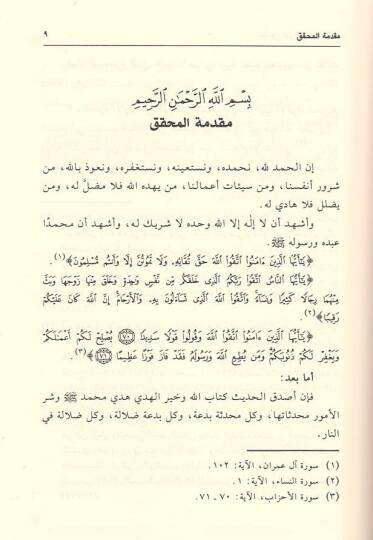 مقدمة المحقق ٩
بِسْمِ اللَّهِ الرَّحْمَٰنِ الرَّحِيمِ
مقدمة المحقق
إن الحمد لله، نحمده، ونستعينه، ونستغفره، ونعوذ بالله، من
شرور أنفسنا، ومن سيئات أعمالنا، من يهده الله فلا مضلَّ له، ومن
يضلل فلا هادي له.
وأشهد أن لا إلٰه إلا الله وحده لا شريك له، وأشهد أن محمدًا
عبده ورسوله ﷺ.
﴿يَٰٓأَيُّهَا الَّذِينَ ءَامَنُوا اتَّقُوا اللَّهَ حَقَّ تُقَاتِهِ وَلَا تَمُوتُنَّ إِلَّا وَأَنتُم مُّسْلِمُونَ﴾(١).
﴿يَٰٓأَيُّهَا النَّاسُ اتَّقُوا رَبَّكُمُ الَّذِي خَلَقَكُم مِّن نَّفْسٍ وَٰحِدَةٍ وَخَلَقَ مِنْهَا زَوْجَهَا وَبَثَّ
مِنْهُمَا رِجَالًا كَثِيرًا وَنِسَآءً وَاتَّقُوا اللَّهَ الَّذِي تَسَآءَلُونَ بِهِ وَالْأَرْحَامَ إِنَّ اللَّهَ كَانَ عَلَيْكُمْ
رَقِيبًا﴾(٢).
﴿يَٰٓأَيُّهَا الَّذِينَ ءَامَنُوا اتَّقُوا اللَّهَ وَقُولُوا قَوْلًا سَدِيدًا ﴿٧٠﴾ يُصْلِحْ لَكُمْ أَعْمَٰلَكُمْ
وَيَغْفِرْ لَكُمْ ذُنُوبَكُمْ وَمَن يُطِعِ اللَّهَ وَرَسُولَهُ فَقَدْ فَازَ فَوْزًا عَظِيمًا ﴿٧١﴾﴾(٣).
أما بعد:
فإن أصدق الحديث كتاب الله وخير الهدي هدي محمد ﷺ وشر
الأمور محدثاتها، وكل محدثة بدعة، وكل بدعة ضلالة، وكل ضلالة في
النار.
(١) سورة آل عمران، الآية: ١٠٢.
(٢) سورة النساء، الآية: ١.
(٣) سورة الأحزاب، الآية: ٧٠ـ٧١.